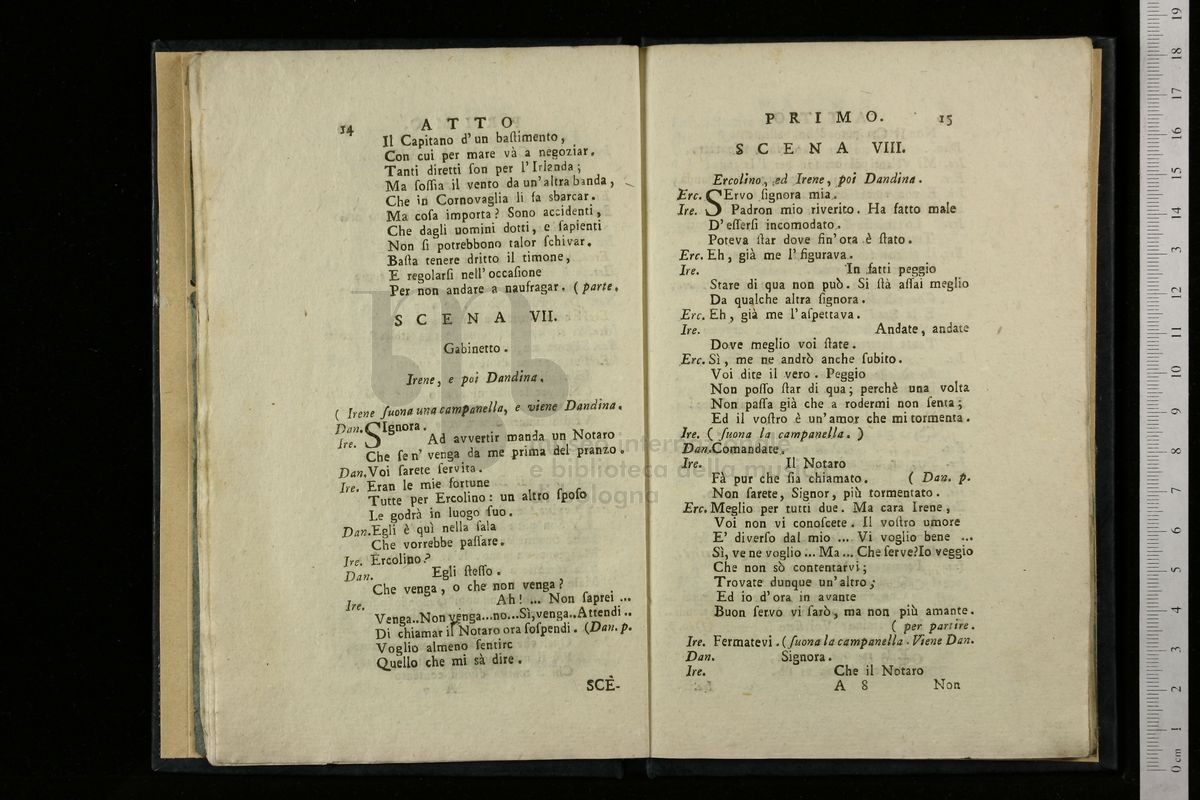 14 ATTO
Il Capitano d'un baſtimento,
Con cui per mare và a negoziar.
Tanti diretti ſon per l'Irlanda;
Ma ſoffia il vento da un'altra banda,
Che in Cornovaglia li fa sbarcar.
Ma coſa importa? Sono accidenti,
Che dagli uomini dotti, e ſapienti
Non ſi potrebbono talor ſchivar.
Baſta tenere dritto il timone,
E regolarſi nell'occaſione
Per non andare a naufragar. (parte.
SCENA VII.
Gabinetto.
Irene, e poi Dandina.
( Irene ſuona una campanella, e viene Dandina.
Dan. SIgnora.
Ire. Ad avvertir manda un Notaro
Che ſen' venga da me prima del pranzo.
Dan. Voi ſarete ſervita.
Ire. Eran le mie fortune
Tutte per Ercolino: un altro ſpoſo
Le godrà in luogo ſuo.
Dan. Egli è quì nella ſala
Che vorrebbe paſſare.
Ire. Ercolino?
Dan. Egli ſteſſo.
Che venga, o che non venga?
Ire. Ah! ... Non ſaprei ...
Venga..Non venga...no...Sì,venga..Attendi..
Di chiamar il Notaro ora ſoſpendi. (Dan. p.
Voglio almeno ſentire
Quello che mi sà dire.
SCE-
PRIMO. 15
SCENA VIII.
Ercolino, ed Irene, poi Dandina.
Erc. SErvo ſignora mia.
Ire. Padron mio riverito. Ha fatto male
D'eſſerſi incomodato.
Poteva ſtar dove fin'ora è ſtato.
Erc. Eh, già me l'figurava.
Ire. In fatti peggio
Stare di qua non può. Si ſtà aſſai meglio
Da qualche altra ſignora.
Erc. Eh, già me l'aſpettava.
Ire. Andate, andate
Dove meglio voi ſtate.
Erc. Sì, me ne andrò anche ſubito.
Voi dite il vero. Peggio
Non poſſo ſtar di qua; perchè una volta
Non paſſa già che a rodermi non ſenta;
Ed il voſtro è un'amor che mi tormenta.
Ire. ( ſuona la campanella. )
Dan. Comandate.
Ire. Il Notaro
Fà pur che ſia chiamato. ( Dan. p.
Non ſarete, Signor, più tormentato.
Erc. Meglio per tutti due. Ma cara Irene,
Voi non vi conoſcete. Il voſtro umore
E' diverſo dal mio ... Vi voglio bene ...
Sì, ve ne voglio ... Ma ... Che ſerve? Io veggio
Che non sò contentarvi;
Trovate dunque un'altro;
Ed io d'ora in avante
Buon ſervo vi ſarò, ma non più amante.
( per partire.
Ire. Fermatevi. (ſuona la campanella. Viene Dan.
Dan. Signora.
Ire. Che il Notaro
A 8 Non
museo internazionale
e biblioteca della musica
di bologna